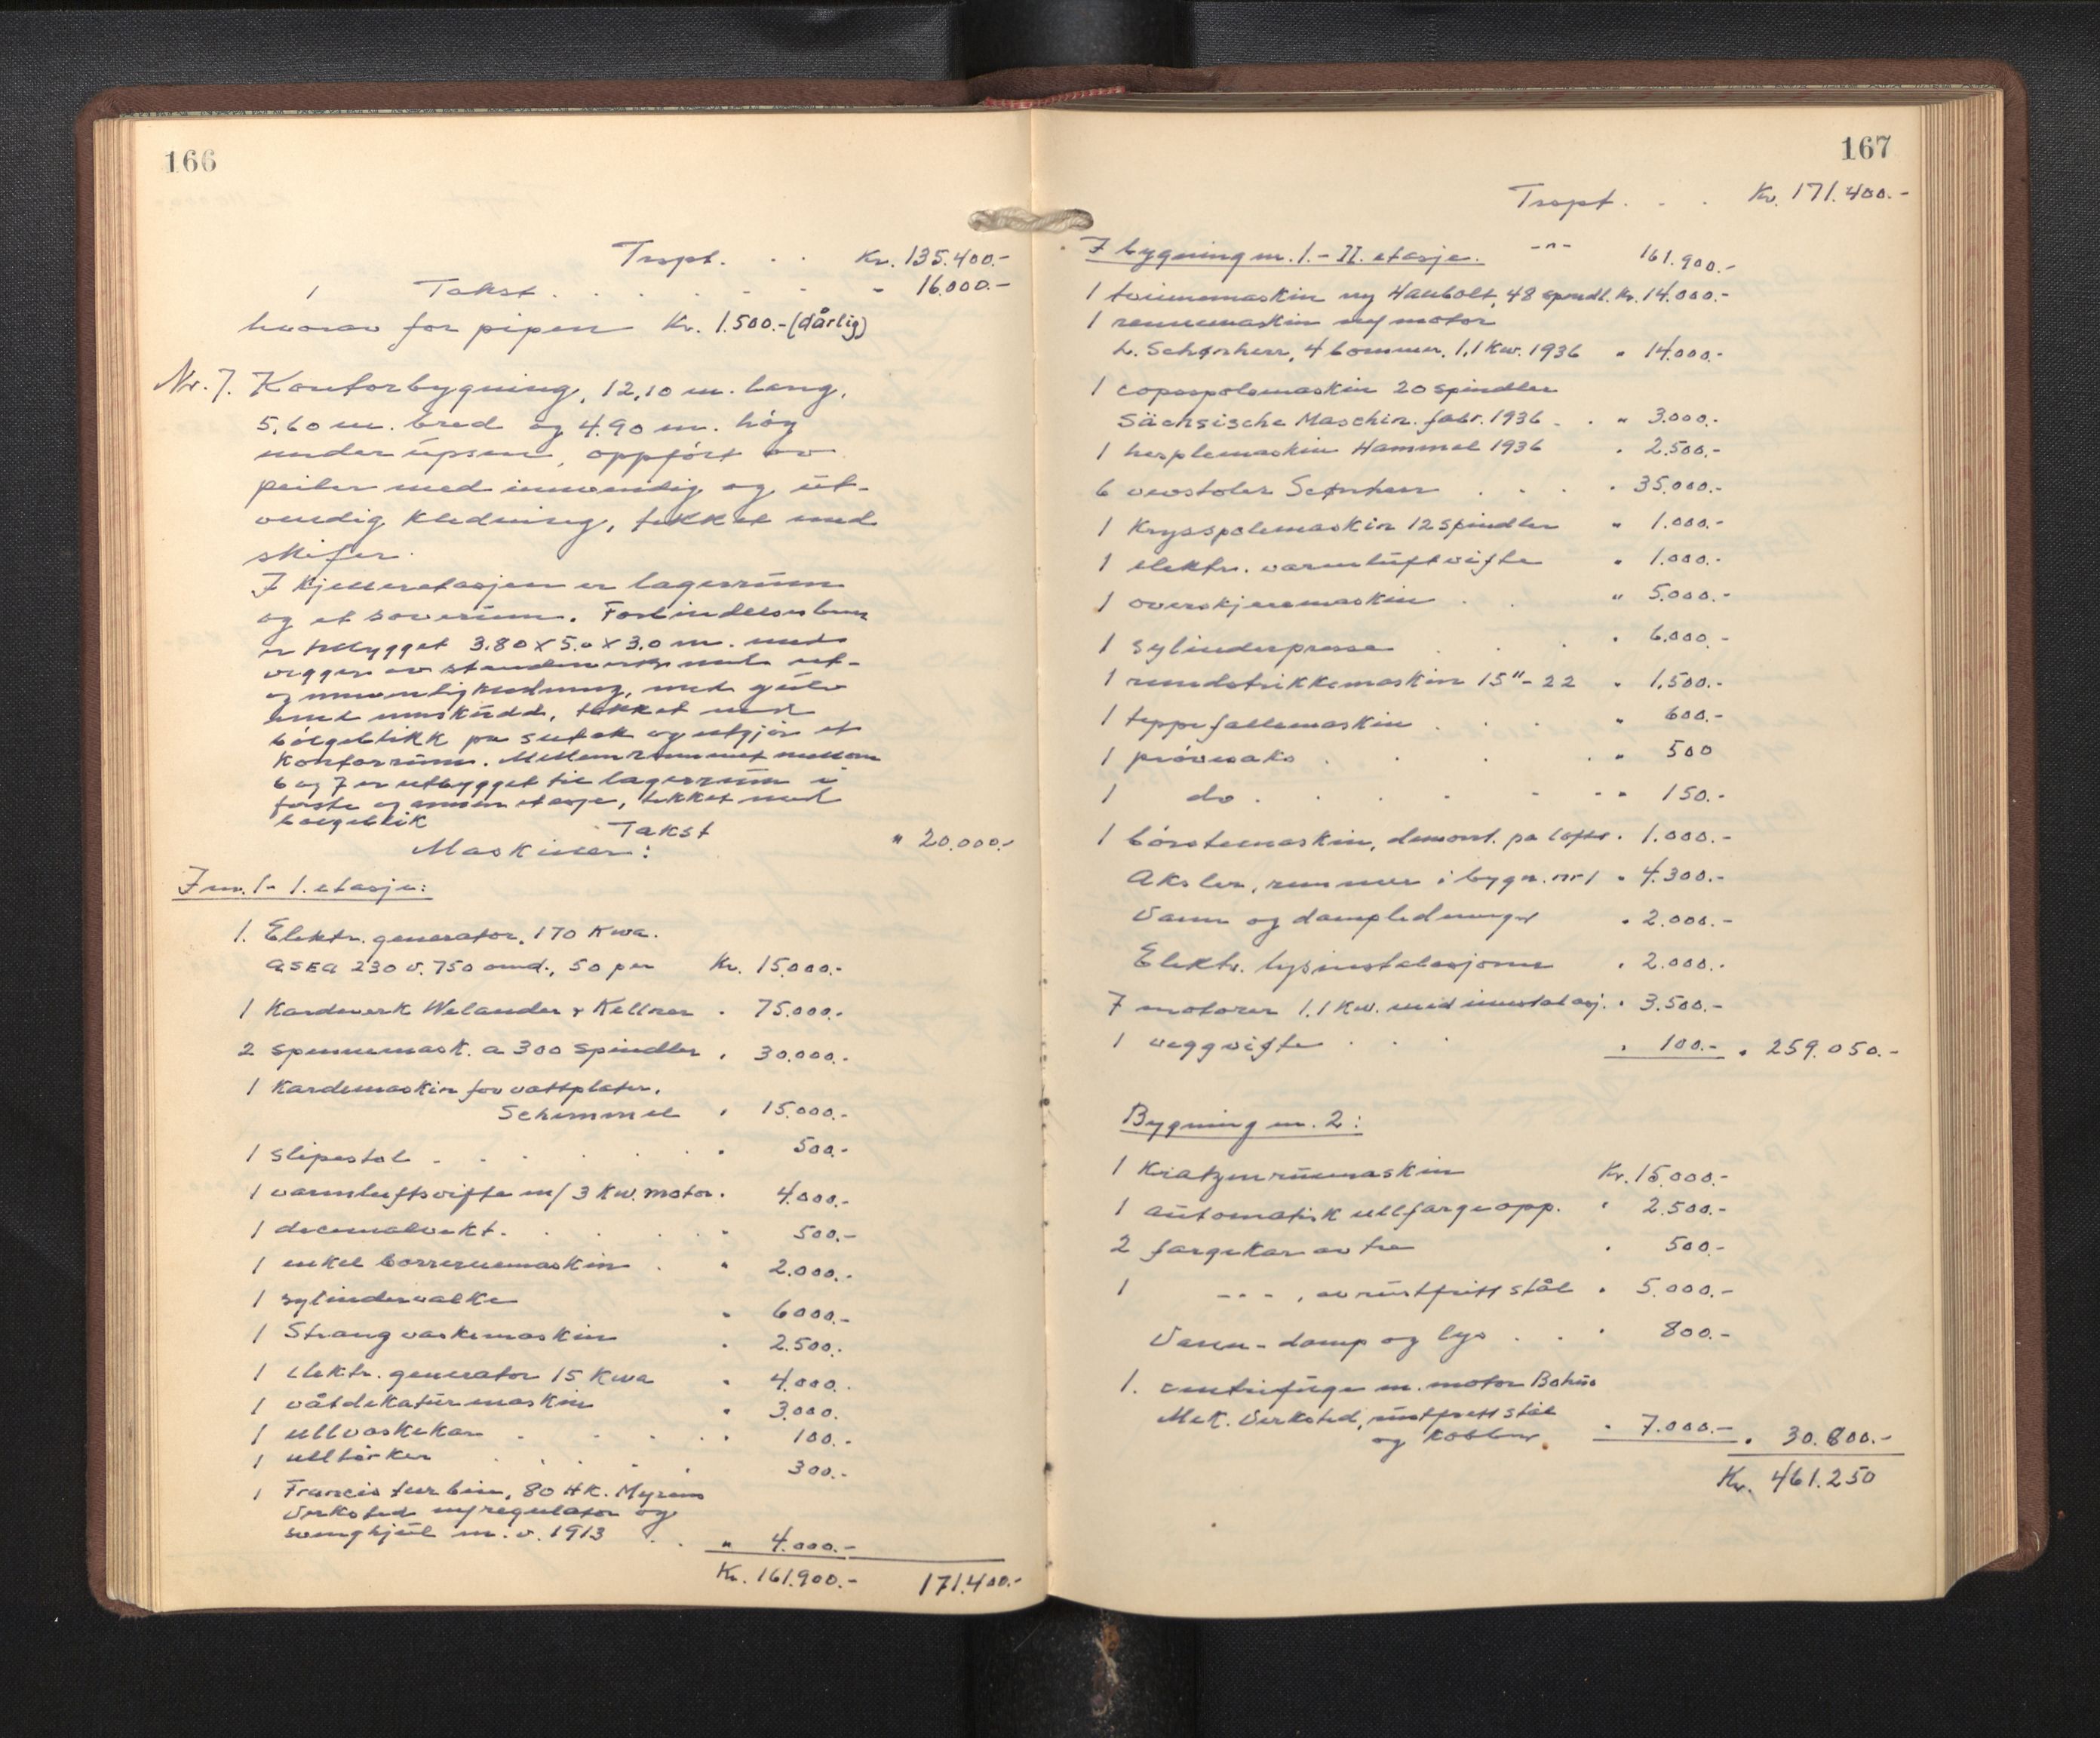 166
Trspt. . . Kr. 135.400.-
1 Takst . . . . . " 16.000.-
hvorav for pipen Kr. 1.500.- (dårlig)
Nr. 7. Kontorbygning, 12,10 m. lang,
5,60 m. bred og 4.90 m. høy
under upsen, oppført av
peiler med innvendig og ut-
vendig kledning, tekket med
skifer.
I kjelleretasjen er lagerrum
og et soverum. Forbindelsesbun
er tilbygget 3.80 x 5.0 x 3.0 m. med
vegger av stenderverk med ut-
og innvendig kledning, med gulv
med innskudd, tekket med
bølgeblikk på sutak og utgjør et
Kontorrum. Mellemrummet mellom
6 og 7 er utbygget til lagerrum i
første og annen etasje, tekket med
bølgeblik
Takst " 20.000.-
Maskiner:
I nr. 1 - 1. etasje:
1. Elektr. generator, 170 Kwa.
ASEA 230 v. 750 omd., 50 per Kr. 15.000.-
1 Kardeverk Welander & Kellner " 75.000.-
2 spinnemask. a 300 spindler " 30.000.-
1 Kardemaskin for vattplater,
Schimmel " 15.000.-
1 slipestol . . . . . " 500.-
1 varmluftsvifte m/ 3 Kw. motor " 4.000.-
1 decimalvekt . . . . " 500.-
1 enkel borreruemaskin . " 2.000.-
1 sylindervalke " 6000.-
1 Strangvaskemaskin " 2.500.-
1 elektr. generator 15 Kwa " 4.000.-
1 våtdekaturmaskin " 3.000.
1 ullvaskekar . . . . " 100.-
1 ulltørker . . . . " 300.-
1 Francis turbin, 80 HK. Myrens
Verksted m/regulator og
svinghjul m. v. 1913 . . " 4.000.-
Kr. 161.900.- 171.400.-
167
Trspt. . . Kr. 171.400.-
I bygning nr. 1. - II. etasje. -"- 161.900.-
1 tvinnemaskin ny Haubolt, 48 spindl. Kr. 14.000.-
1 rennemaskin m/ motor
L. Schønherr, 4 bommer, 1,1 Kw. 1936 " 14.000.-
1 copsspolemaskin 20 spindler
Sächsische Maschin. fabr. 1936 . . " 3.000.-
1 hesplemaskin Hammel 1936 " 2.500.-
6 vevstoler Scønherr . . . " 35.000.-
1 Krysspolemaskin 12 spindler " 1.000.-
1 elektr. varmluftvifte " 1.000.-
1 overskjæremaskin . . " 5.000.-
1 sylinderpresse . . . " 6.000.-
1 rundstrikkemaskin 15" - 22 " 1.500.-
1 teppefallemaskin . . . " 600.-
1 prøvesaks . . . . " 500
1 do . . . . . . " 150.-
1 børstemaskin, demont. på loftet " 1.000.-
Aksler, remmer i bygn. nr 1 " 4.300.-
Vann og dampledninger " 2.000.-
Elektr. lysinstalasjoner " 2.000.-
7 motorer 1.1 Kw. med innstalasj. " 3.500.-
1 veggvifte . . . " 100.- " 259.050.-
Bygning nr. 2:
1 Kratzenruemaskin Kr. 15.000.-
1 automatisk ullfargeopp. " 2.500.-
2 fargekar av tre " 500.-
1 - " - , av rustfritt stål " 5.000.-
Vann - damp og lys . . " 800.-
1. centrifuge m. motor Bohus
Mek. Verksted, rustfritt stål
og kobber. " 7.000.- " 30.800.-
Kr. 461.250